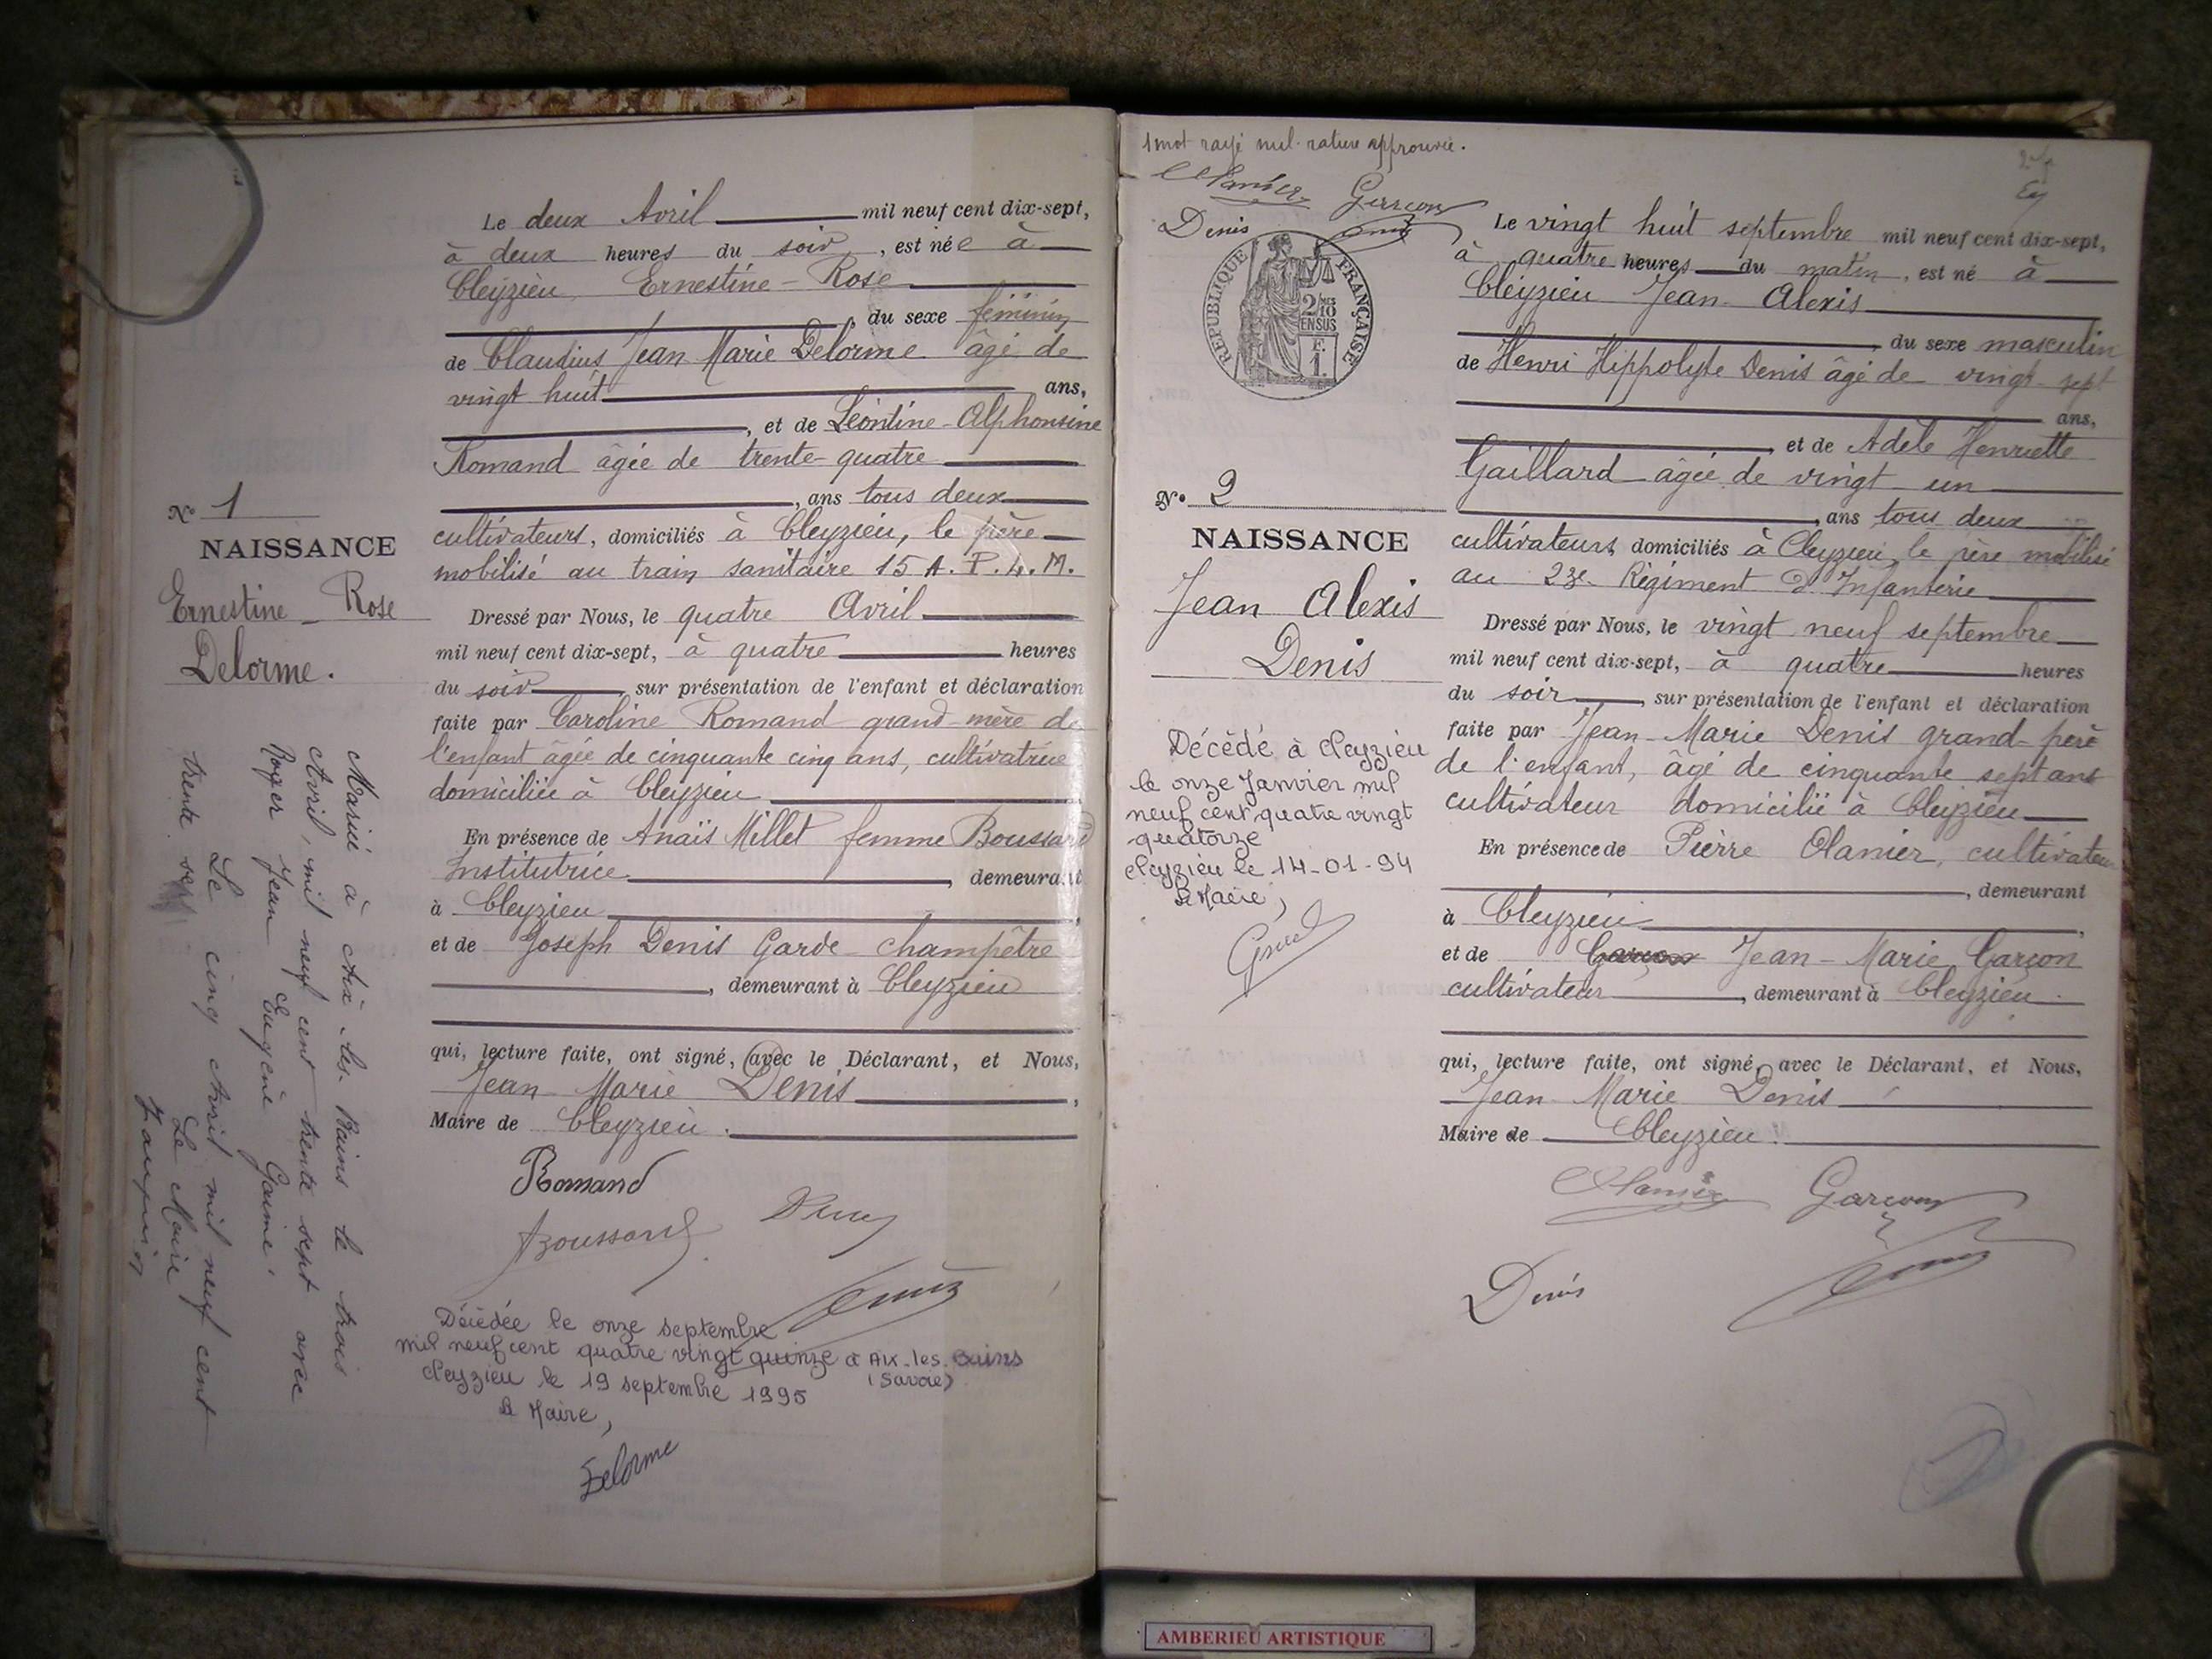 Le deux Avril mil neuf cent dix-sept,
à deux heures du soir, est née à
Cleyzieu, Ernestine-Rose
, du sexe féminin
de Claudius Jean Marie Delorme âgé de
vingt huit ans,
, et de Léontine-Alphonsine
Romand âgée de trente-quatre
, ans tous deux
cultivateurs, domiciliés à Cleyzieu, le père
mobilisé au train sanitaire 15 A. P. L. M.
Dressé par Nous, le quatre Avril
mil neuf cent dix-sept, à quatre heures
du soir, sur présentation de l'enfant et déclaration
faite par Caroline Romand grand-mère de
l'enfant âgée de cinquante cinq ans, cultivatrice
domiciliée à Cleyzieu
En présence de Anaïs Millet femme Boussard
Institutrice, demeurant
à Cleyzieu,
et de Joseph Denis Garde-champêtre
, demeurant à Cleyzieu
qui, lecture faite, ont signé, avec le Déclarant, et Nous,
Jean-Marie Denis,
Maire de Cleyzieu.
Romand
Boussard
Décédée le onze septembre
mil neuf cent quatre vingt quinze à Aix-les-Bains
(Savoie)
Cleyzieu le 19 septembre 1995
Le Maire,
Delorme
N° 1
NAISSANCE
Ernestine-Rose
Delorme.
Marié à Aix-les-Bains le trois
Avril, mil neuf cent trente sept avec
Roger Jean Eugène
Le cinq Avril mil neuf cent
trente sept
Le Maire
1 mot rayé nul. rature approuvée.
Olanier Garçon
Denis
REPUBLIQUE FRANÇAISE
2/10
EN SUS
F.
1.
N° 2
NAISSANCE
Jean Alexis
Denis
Décédé à Cleyzieu
le onze Janvier mil
neuf cent quatre vingt
quatorze
Cleyzieu le 14-01-94
Le Maire,
Le vingt huit septembre mil neuf cent dix-sept,
à quatre heures du matin, est né à
Cleyzieu Jean-Alexis
, du sexe masculin
de Henri Hippolyte Denis âgé de vingt-sept
ans,
et de Adèle Henriette
Gaillard âgée de vingt-un
, ans tous deux
cultivateurs domiciliés à Cleyzieu le père mobilisé
au 23e Régiment d'Infanterie
Dressé par Nous, le vingt neuf septembre
mil neuf cent dix-sept, à quatre heures
du soir, sur présentation de l'enfant et déclaration
faite par Jean-Marie Denis grand-père
de l'enfant, âgé de cinquante sept ans
cultivateur domicilié à Cleyzieu
En présence de Pierre Olanier, cultivateur
, demeurant
à Cleyzieu,
et de Garçon Jean-Marie Garçon
cultivateur, demeurant à Cleyzieu.
qui, lecture faite, ont signé, avec le Déclarant, et Nous,
Jean Marie Denis
Maire de Cleyzieu.
Olanier Garçon
Denis
AMBERIEU ARTISTIQUE